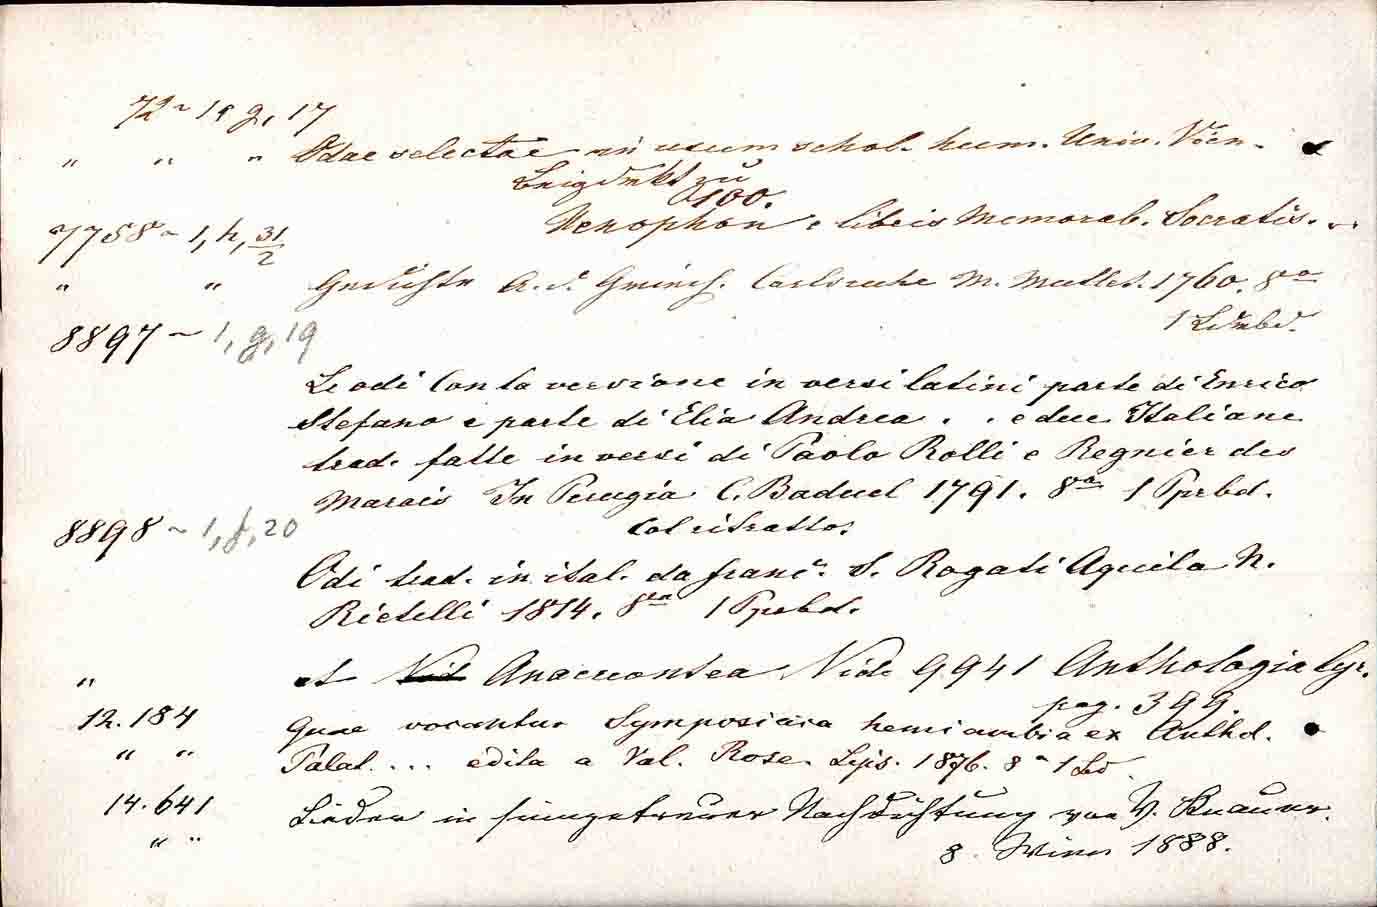 72 ~ 1, g, 17
" " " Odae selectae in usum schol. hum. Univ. Vien.
zu
100.
Xenophon e libris Memorab. Socratis.
7758 ~ 1, h, 31/2
" " Gedichte a. d. Griech. Carlsruhe M. Mullet. 1760. 8va
1 Ldrbd.
8897 ~ 1, g, 19
Le odi con la versione in versi latini parte di Enrico
Stefano e parte di Elia Andrea . . e due Italiane
trad. fatte in versi di Paolo Rolli e Regnier des
Marais In Perugia C. Baduel 1791. 8va 1 Pprbd.
col ritratto.
8898 ~ 1, g, 20
Odi trad. in ital. da Franc. S. Rogati Aquila N.
Rietelli 1814. 8va 1 Pprbd.
" et Anacreontea Vide 9941 Anthologia lyr.
pag. 399.
12.184 quae vocantur Symposiaca hemiambia ex Anthol.
" " Palat. ... edita a Val. Rose. Lips. 1876. 8° 1 Bd
14.641 Lieder in sinngetreuer Nachdichtung von V. Knauer.
" " 8. Wien 1888.